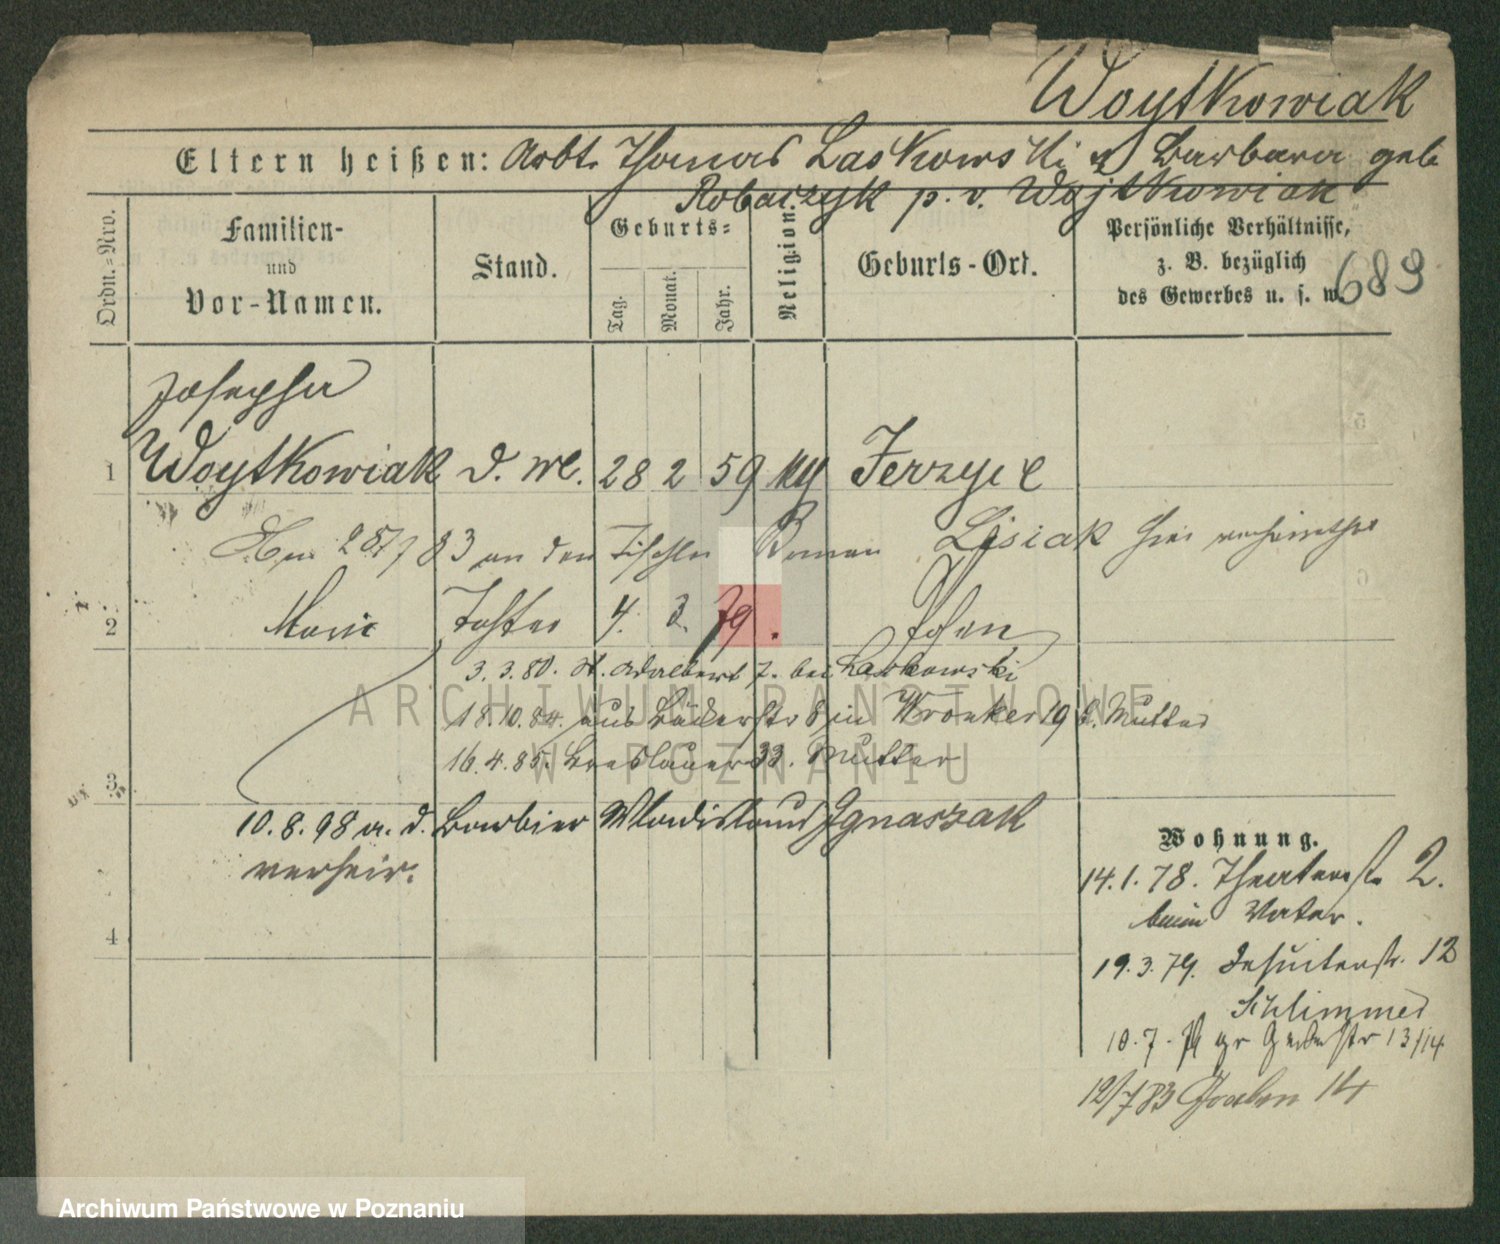 Woytkowiak
Eltern heißen: Arbt. Thomas Laskowski u Barbara geb
Robaczyk p. v. Wojtkowiak
Ordn.-Nro.
Familien-
und
Vor-Namen.
Stand.
Geburts-
Tag.
Monat.
Jahr.
Religion.
Geburts-Ort.
Persönliche Verhältnisse,
z. B. bezüglich
des Gewerbes u. s. w.
689
Josepha
1 Woytkowiak d. m. 28 2 59 kg Jerzyce
Am 28/7 83 an den Tischler Roman Lisiak hier verheirathet
2 Marie Tochter 4. 3. 79. Posen
3. 3. 80. St. Adalbert 7. bei Laskowski
18.10.84. aus Bäckerstr 8 in Wronker 19 b. Mutter
16.4.85. Breslauer 33. Mutter
3
10.8.98 a. d. Barbier Wladislaus Ignaszak
verheir.
4
Wohnung.
14.1.78. Theaterstr 2.
beim Vater.
19.3.79. Jesuitenstr. 12
Schlimmer
10.7. 79 gr Gerberstr 13/14
12/7 83 Graben 14
ARCHIWUM PAŃSTWOWE
W POZNANIU
Archiwum Państwowe w Poznaniu